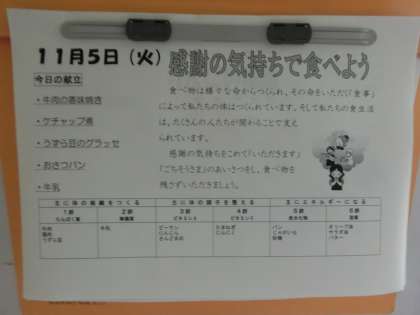 11月5日（火）
感謝の気持ちで食べよう
今日の献立
・牛肉の香味焼き
・ケチャップ煮
・うずら豆のグラッセ
・おさつパン
・牛乳
食べ物は様々な命からつくられ、その命をいただく「食事」
によって私たちの体はつくられています。そして私たちの食生活
は、たくさんの人たちが関わることで支え
られています。
感謝の気持ちをこめて「いただきます」
「ごちそうさま」のあいさつをし、食べ物を
残さずいただきましょう。
主に体の組織をつくる 主に体の調子を整える 主にエネルギーになる
1群 2群 3群 4群 5群 6群
たんぱく質 無機質 ビタミンA ビタミンC 炭水化物 脂質
牛肉 牛乳 ピーマン たまねぎ パン オリーブ油
にんじん にんにく じゃがいも サラダ油
うずら豆 さんどまめ 砂糖 バター